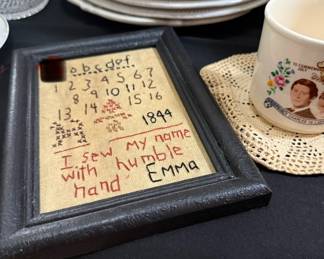 a b c d e f
1 2 3 4 5 6 7
8 9 10 11 12
13 14 15 16
1844
I sew my name
with humble
hand Emma